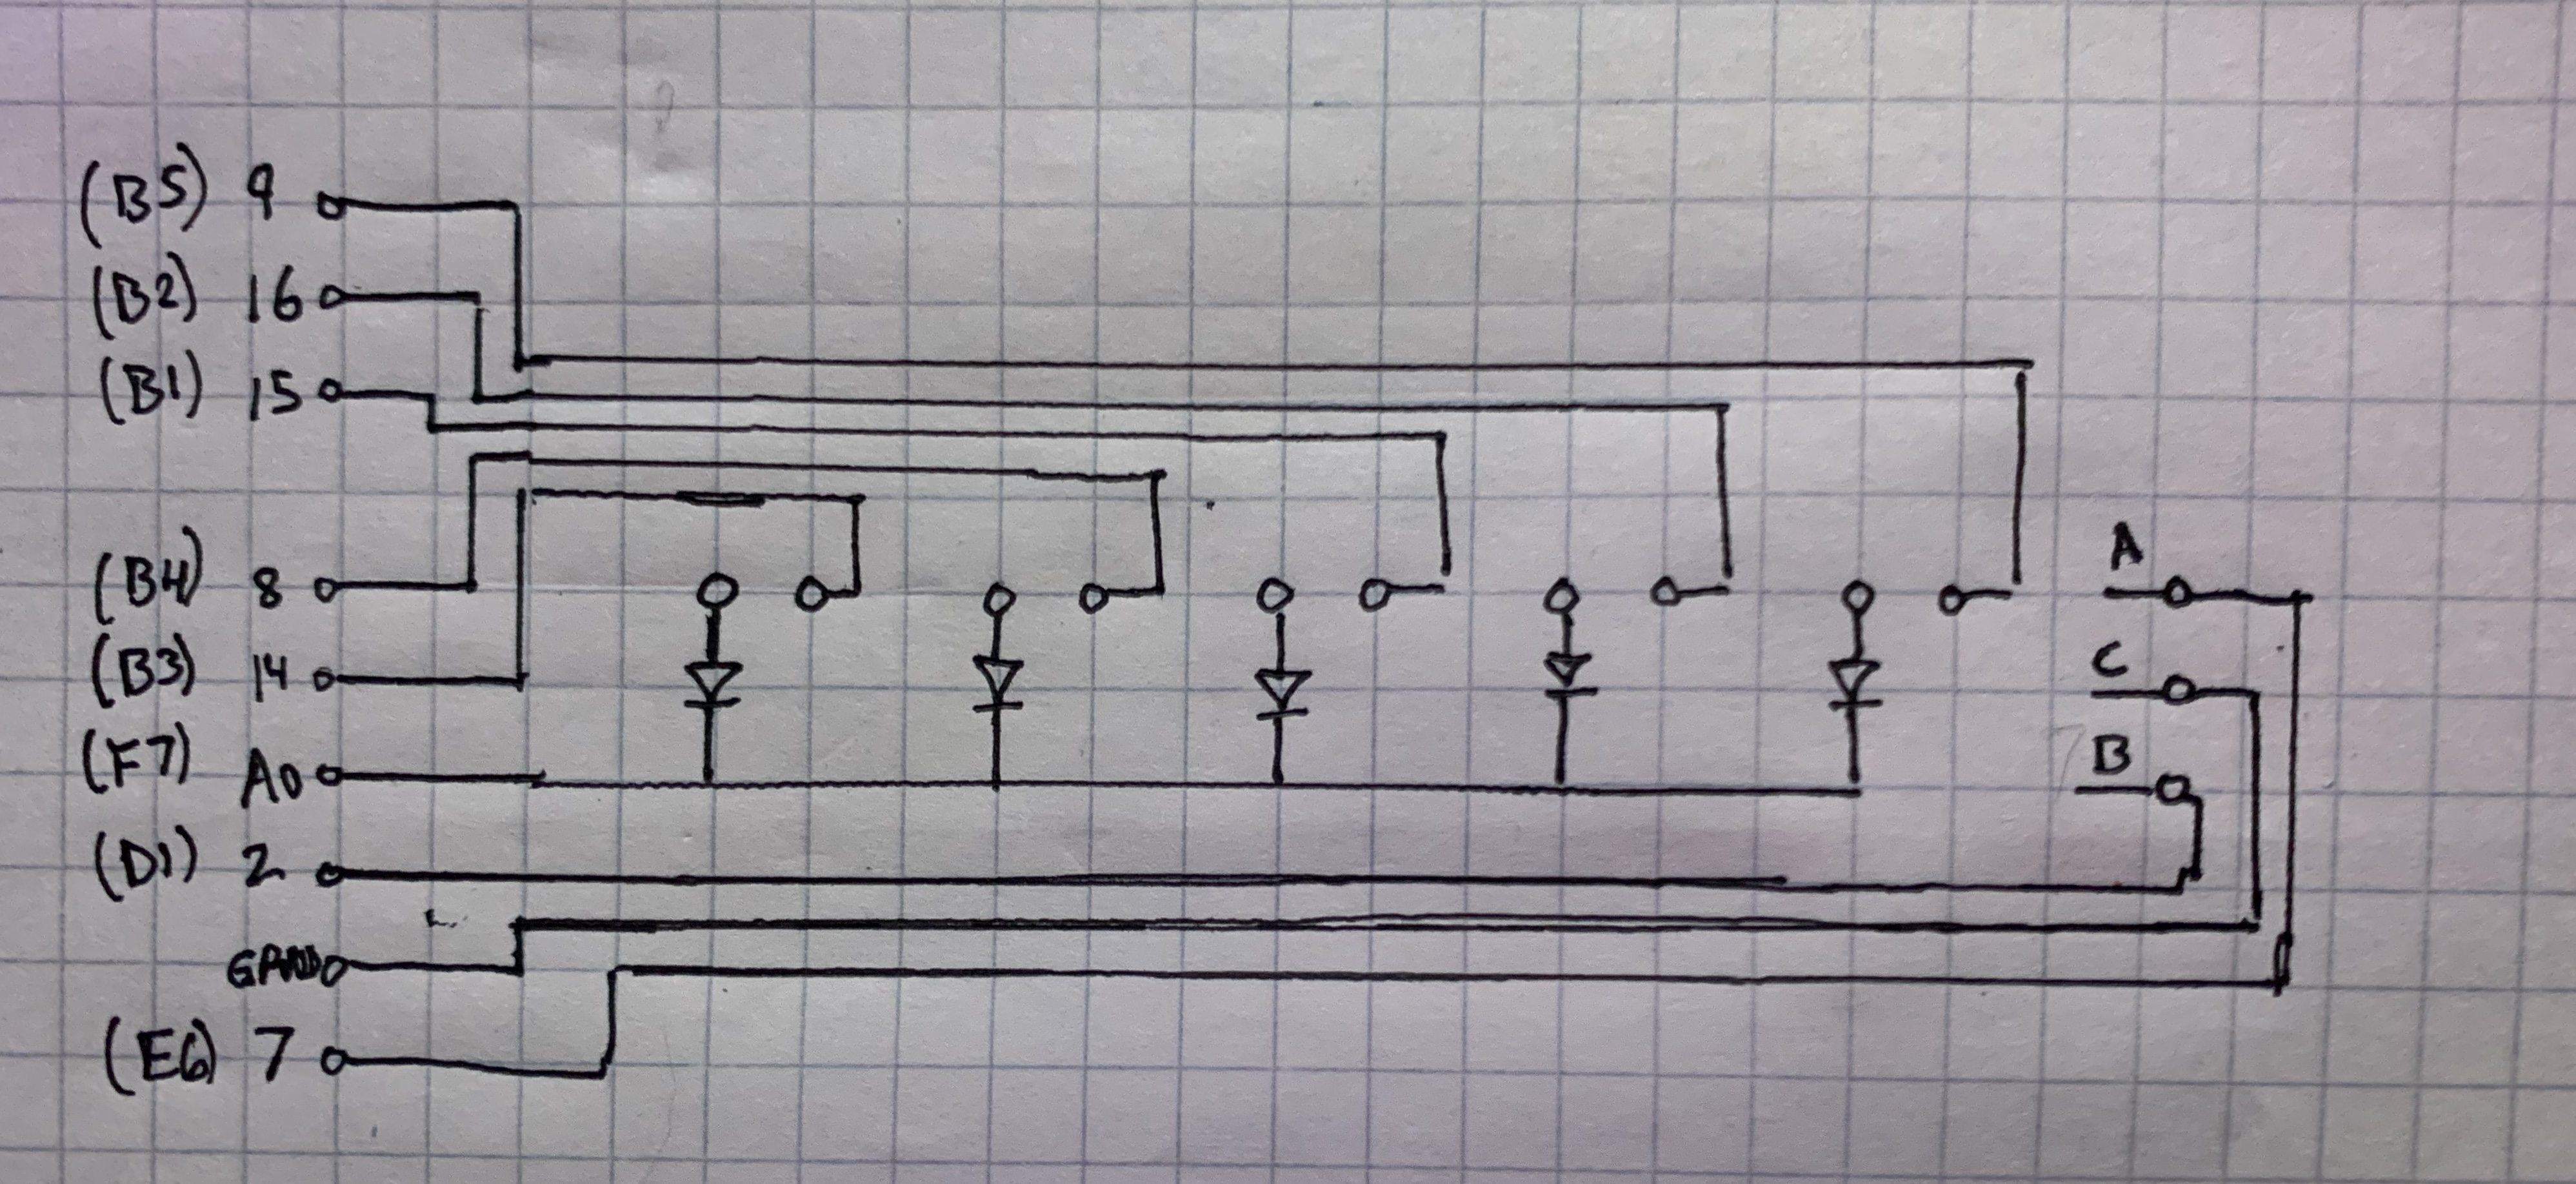 (B5) 9
(B2) 16
(B1) 15
(B4) 8
(B3) 14
(F7) A0
(D1) 2
GRND
(E6) 7
A
C
B